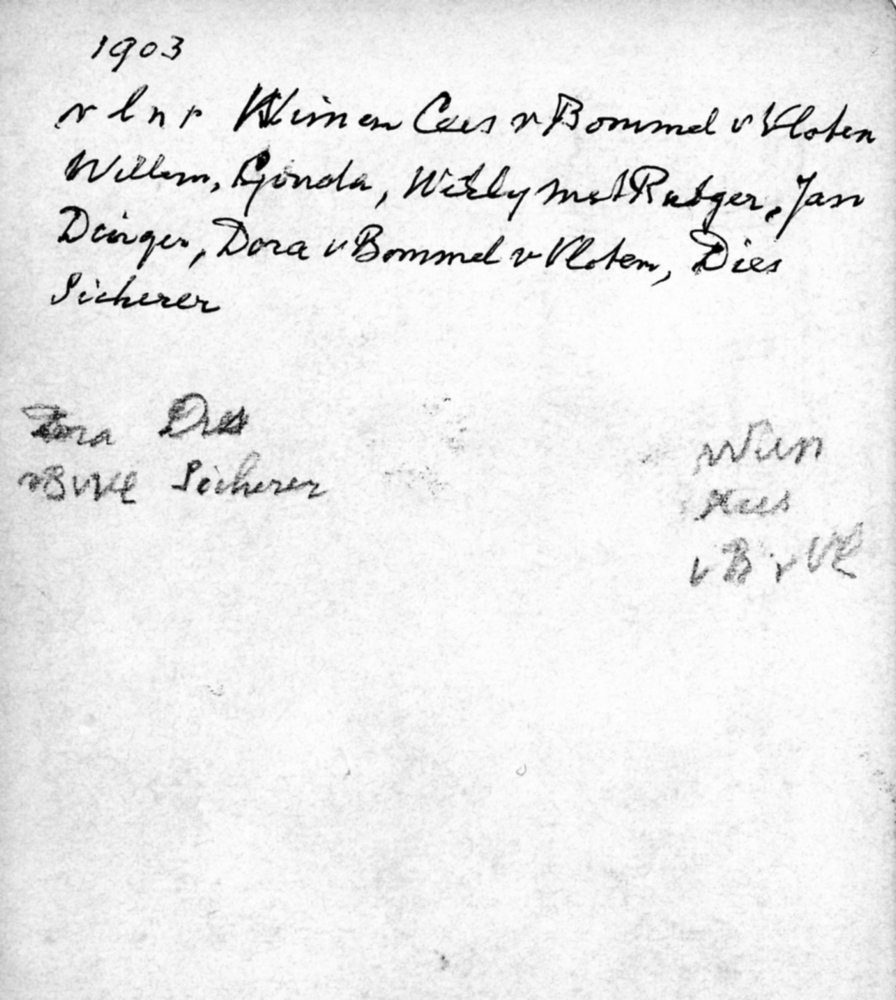 1903
v l n r Wim en Cees v Bommel v Vloten
Willem, Gonda, Willy met Rutger, Jan
Dinger, Dora v Bommel v Vloten, Dies
Sicherer
Dora Dies
vBvVl Sicherer
Wim
Kees
v B v Vl